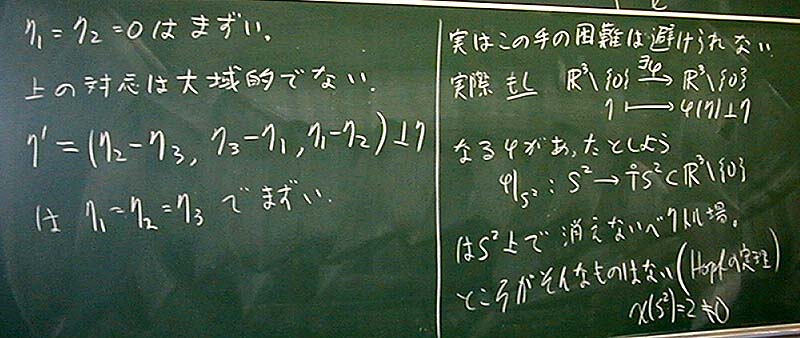 η₁=η₂=0はまずい.
上の対応は大域的でない.
η'=(η₂-η₃, η₃-η₁, η₁-η₂)⊥η
は η₁=η₂=η₃ でまずい.
実はこの手の困難は避けられない
実際 もし ℝ³\{0} ∃φ→ ℝ³\{0}
η ↦ φ(η)⊥η
なるφがあったとしよう
φ|S² : S² → T̊S² ⊂ ℝ³\{0}
はS²上で消えないベクトル場。
ところがそんなものはない(Hopfの定理)
χ(S²)=2≠0